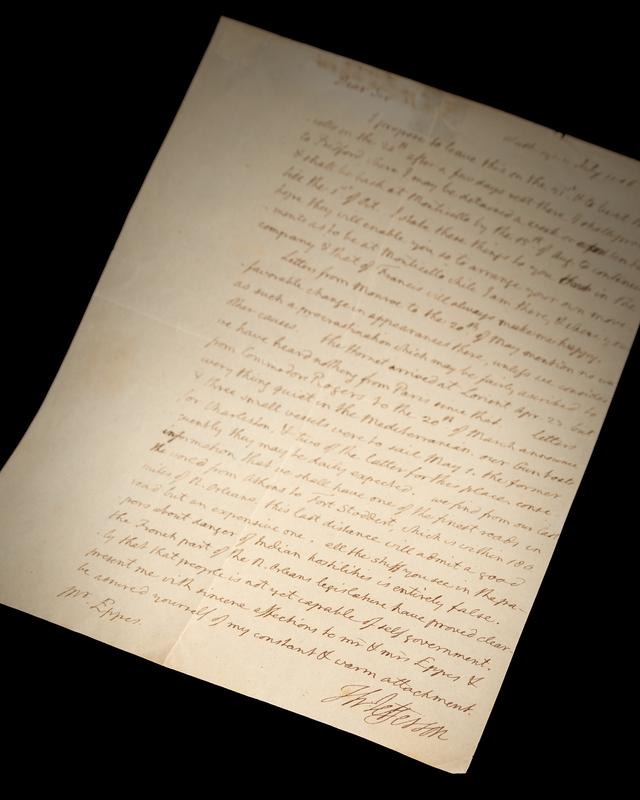 Dear Sir
July
I propose to leave this on the 21st & to be at
on the 24th after a few days rest there I shall
to Bedford where I may be detained a week or
& shall be back at Monticello by the 15th of Aug. to continue
till the 1st of Oct. I state these things to you that in the
hope they will enable you so to arrange your own move
ments as to be at Monticello while I am there, & where your
company & that of Francis will always make me happy.
Letters from Monroe to the 20th of May mention no
favorable change in appearances there, unless we consider
as such a procrastination which may be fairly ascribed to
other causes. the Hornet arrived at Lorient Apr. 23. but
we have heard nothing from Paris since that. Letters
from Commodore Rogers to the 20th of March announce
every thing quiet in the Mediterranean. our Gunboats
& three small vessels were to sail May 1. the former
for Charleston, & two of the latter for this place, conse
quently they may be daily expected. we find from our last
information that we shall have one of the finest roads in
the world from Athens to Fort Stoddert, which is within 180
miles of N. Orleans. this last distance will admit a good
road but an expensive one. all the stuff you see in the pa-
pers about danger of Indian hostilities is entirely false.
the French part of the N. Orleans legislature have proved clear-
ly that that people is not yet capable of self government.
present me with sincere affections to mr & mrs Eppes &
be assured yourself of my constant & warm attachment.
Th Jefferson
Mr. Eppes